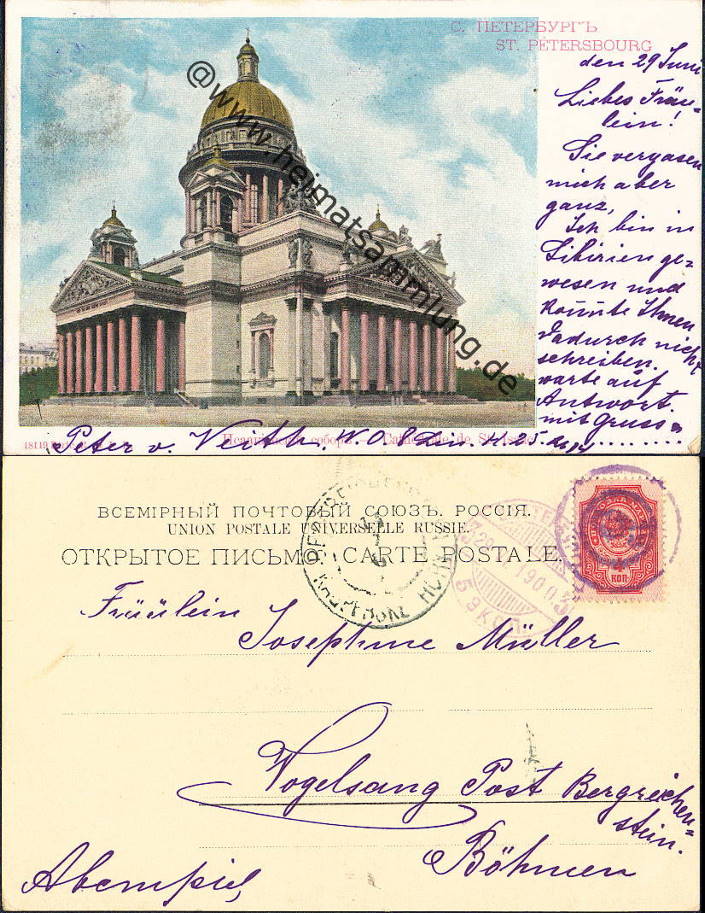 С. ПЕТЕРБУРГЪ
ST. PÉTERSBOURG
den 29 Juni
Liebes Fräu-
lein!
Sie vergasen
mich aber
ganz,
Ich bin in
Sibirien ge-
wesen und
konnte Ihnen
dadurch nicht
schreiben.
warte auf
Antwort.
mit Gruss
@www.heimatsammlung.de
Peter v. Veith. W.O. 8 Lin. 41.25.
ВСЕМІРНЫЙ ПОЧТОВЫЙ СОЮЗЪ. РОССІЯ.
UNION POSTALE UNIVERSELLE RUSSIE.
ОТКРЫТОЕ ПИСЬМО. CARTE POSTALE.
4
КОП
Fräulein
Josephine Müller
Vogelsang Post Bergreichen-
stein.
Böhmen